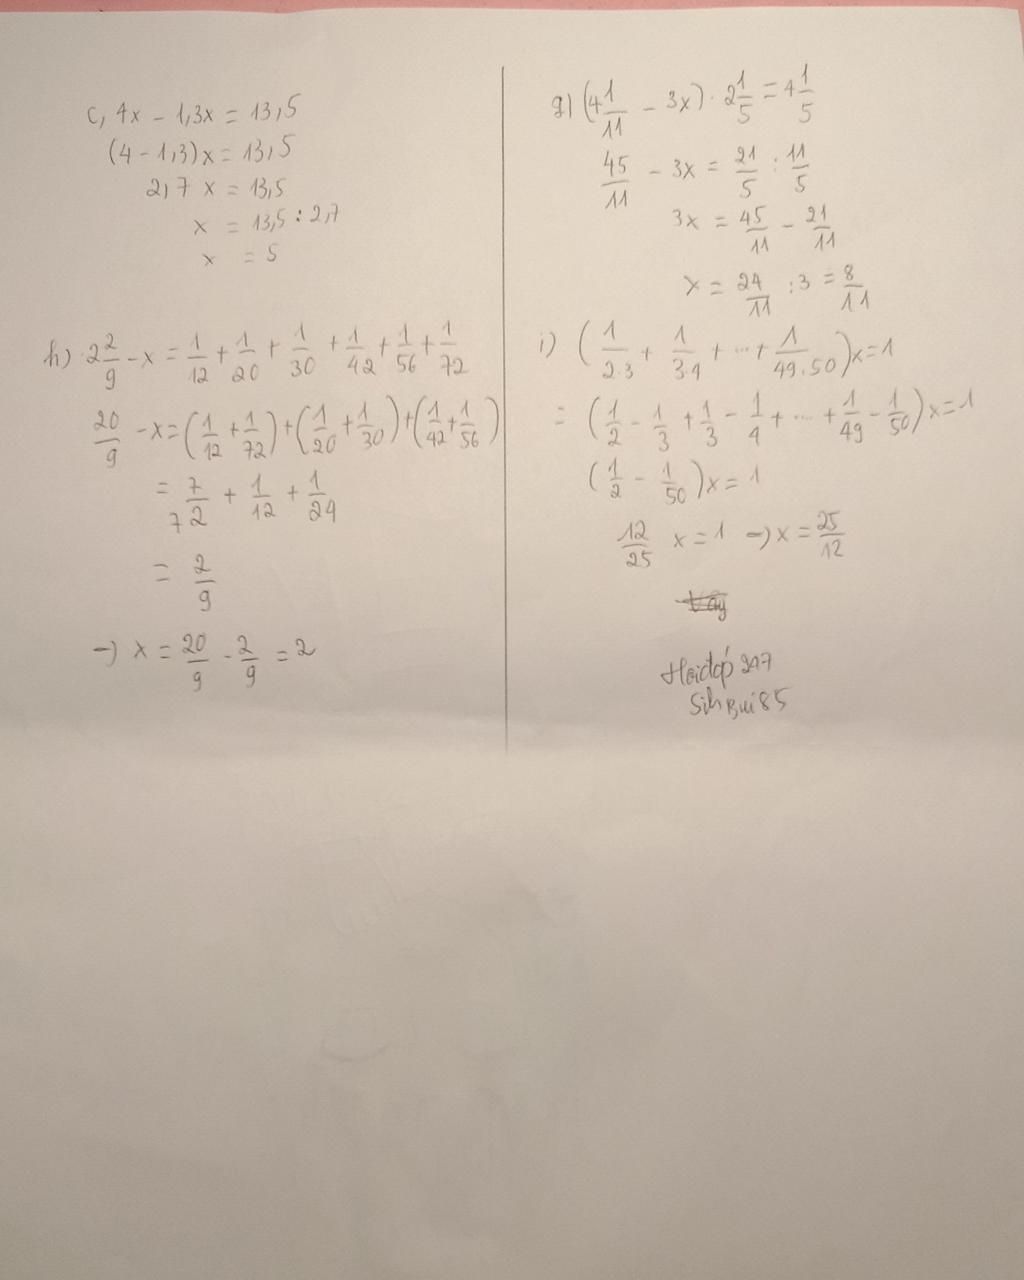 c, 4x - 1,3x = 13,5
(4 - 1,3)x = 13,5
2,7 x = 13,5
x = 13,5 : 2,7
x = 5
h) 2 2/9 - x = 1/12 + 1/20 + 1/30 + 1/42 + 1/56 + 1/72
20/9 - x = (1/12 + 1/72) + (1/20 + 1/30) + (1/42 + 1/56)
= 7/72 + 1/12 + 1/24
= 2/9
→ x = 20/9 - 2/9 = 2
g) (4 1/11 - 3x) . 2 1/5 = 4 1/5
45/11 - 3x = 21/5 : 11/5
3x = 45/11 - 21/11
x = 24/11 : 3 = 8/11
i) (1/2.3 + 1/3.4 + ... + 1/49.50)x = 1
= (1/2 - 1/3 + 1/3 - 1/4 + ... + 1/49 - 1/50)x = 1
(1/2 - 1/50)x = 1
12/25 x = 1 → x = 25/12
Hoidap 247
Sinh Bui 85